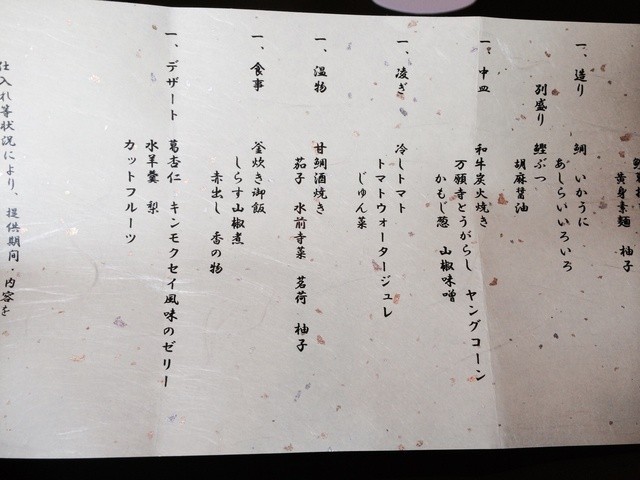 黄身素麺　柚子
一、造り　鯛　いかうに
あしらいいろいろ
別盛り　鰹ぶつ
胡麻醤油
一、中皿　和牛炭火焼き
万願寺とうがらし　ヤングコーン
かもじ葱　山椒味噌
一、凌ぎ　冷しトマト
トマトウォータージュレ
じゅん菜
一、温物　甘鯛酒焼き
茄子　水前寺菜　茗荷　柚子
一、食事　釜炊き御飯
しらす山椒煮
赤出し　香の物
一、デザート　葛杏仁　キンモクセイ風味のゼリー
水羊羹　梨
カットフルーツ
仕入れ等状況により、提供期間・内容を